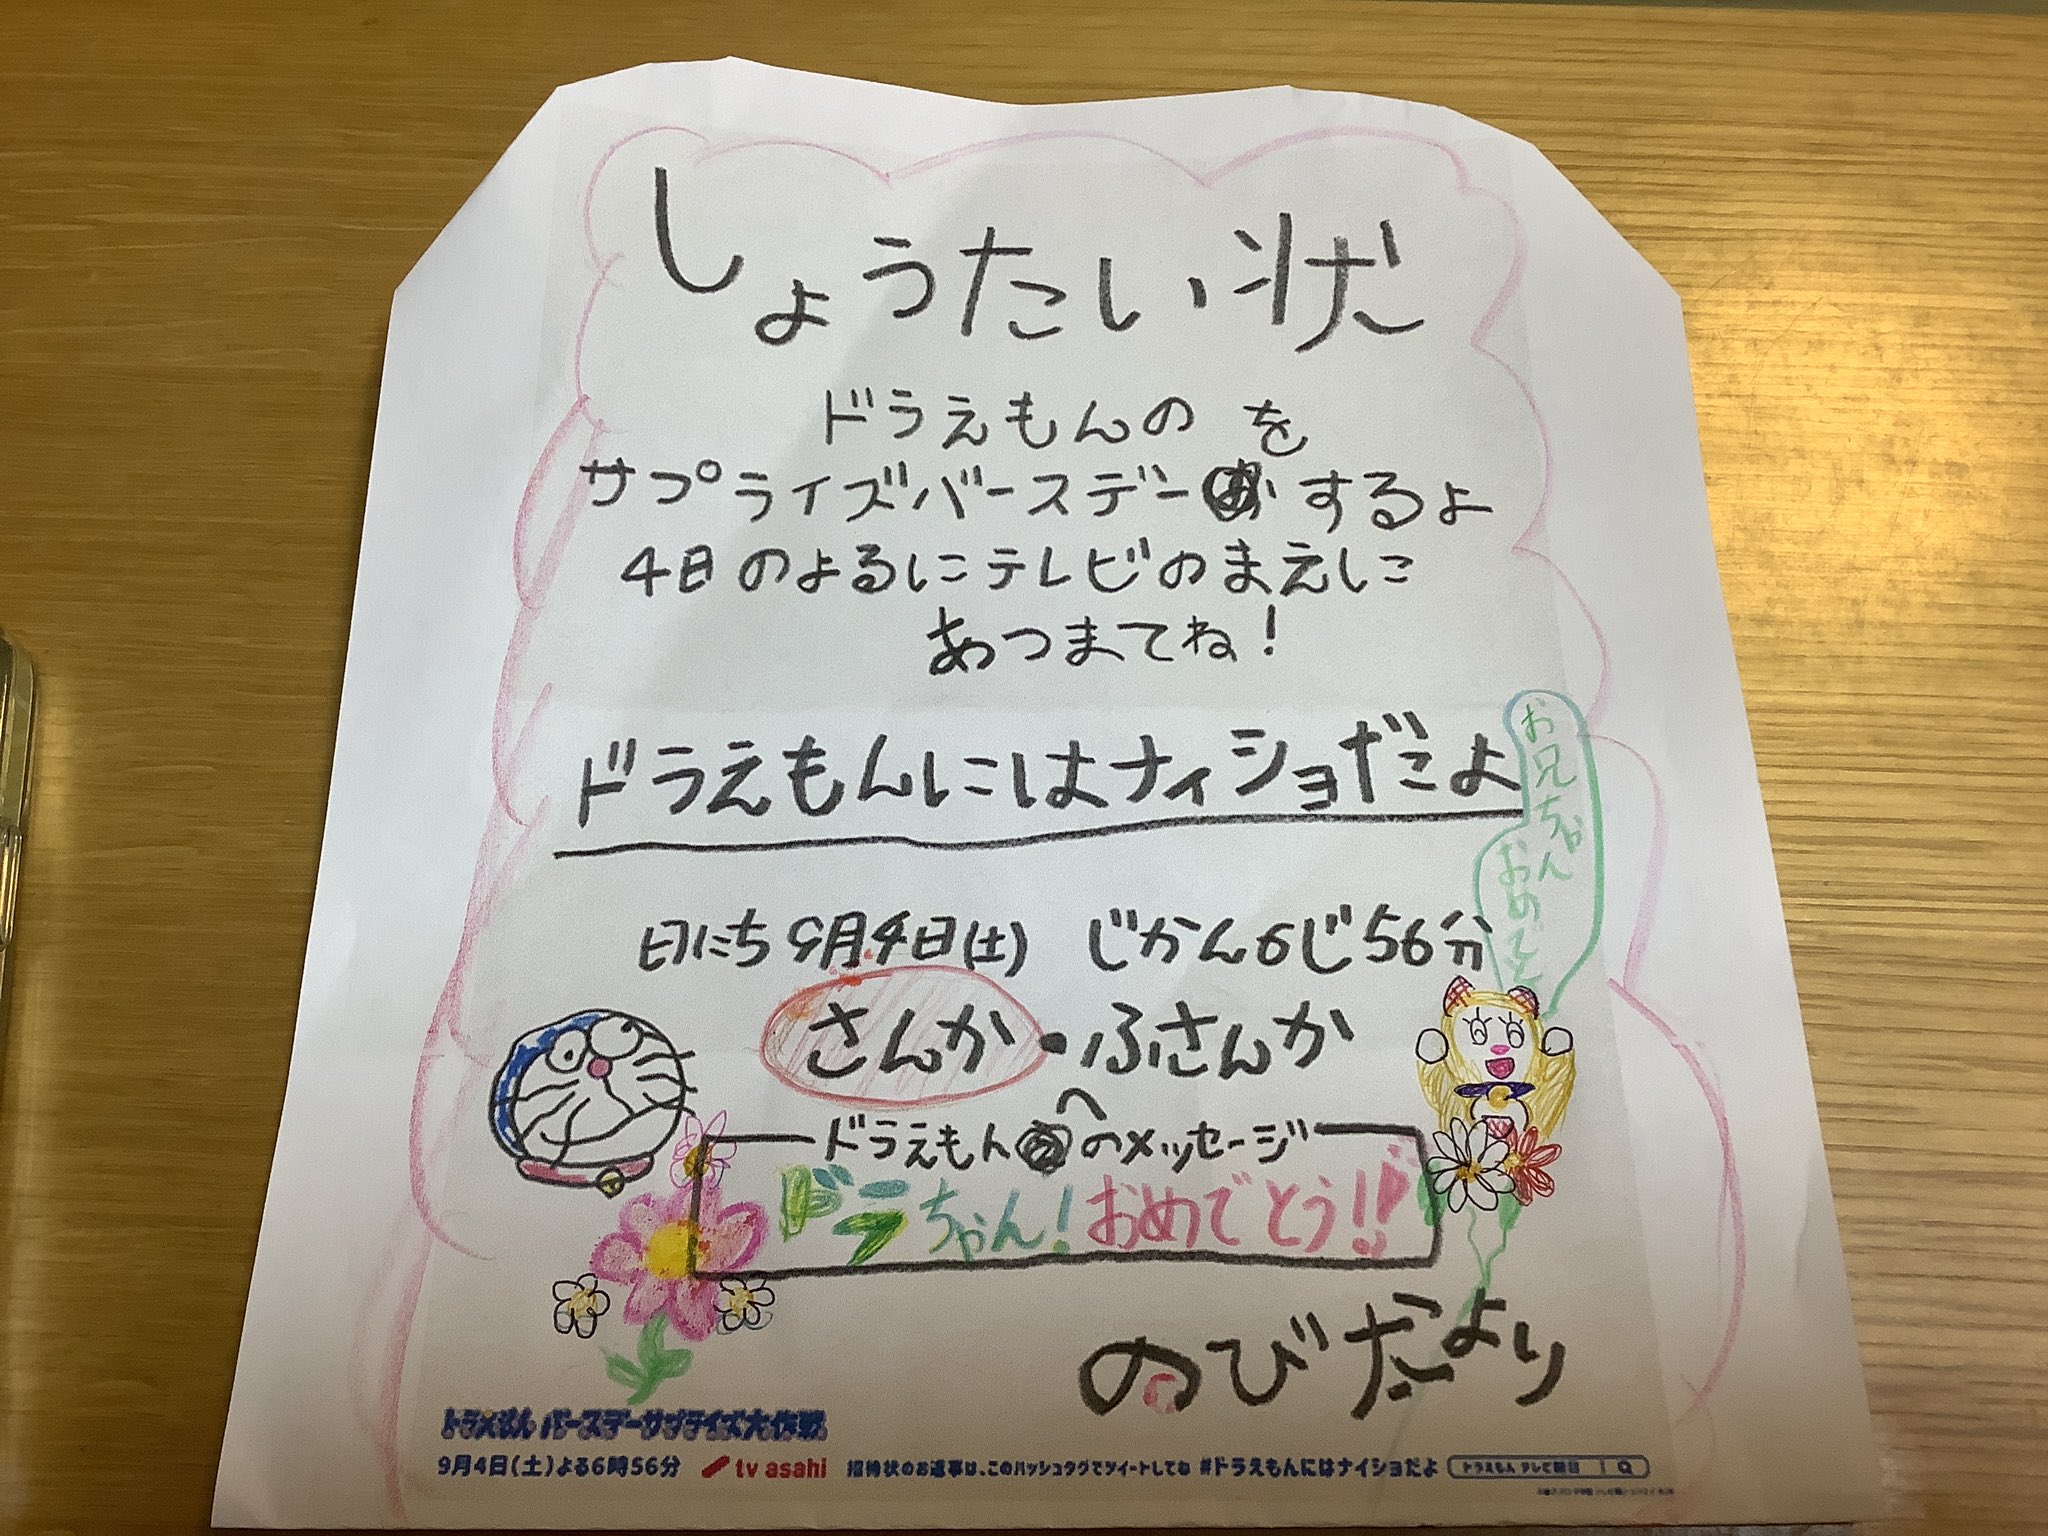 しょうたい状
ドラえもんの を
サプライズバースデーするよ
4日のよるにテレビのまえに
あつまてね！
ドラえもんにはナイショだよ
お兄ちゃん
おめでと
日にち 9月4日(土) じかん6じ56分
さんか・ふさんか
へ
ドラえもんのメッセージ
ドラちゃん！おめでとう！！
のびたより
ドラえもん バースデーサプライズ大作戦
9月4日(土)よる6時56分 tv asahi 招待状のお返事は、このハッシュタグでツイートしてね #ドラえもんにはナイショだよ ドラえもん テレビ朝日